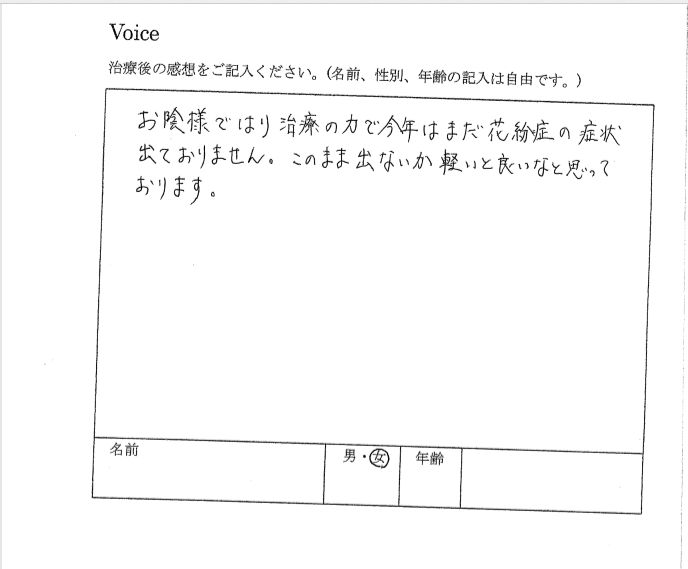 Voice
治療後の感想をご記入ください。(名前、性別、年齢の記入は自由です。)
お陰様ではり治療の力で今年はまだ花粉症の症状
出ておりません。このまま出ないか軽いと良いなと思って
おります。
名前 男・女 年齢